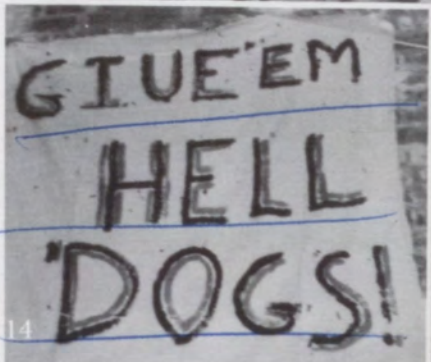 GIVE 'EM
HELL
'DOGS!
14